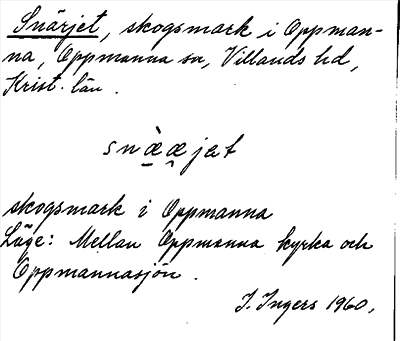 Snärjet, skogsmark i Oppman-
na, Oppmanna sn, Villands hd,
Krist. län.
snæ̠̀æ̯jet
skogsmark i Oppmanna
Läge: Mellan Oppmanna kyrka och
Oppmannasjön.
I. Ingers 1960.